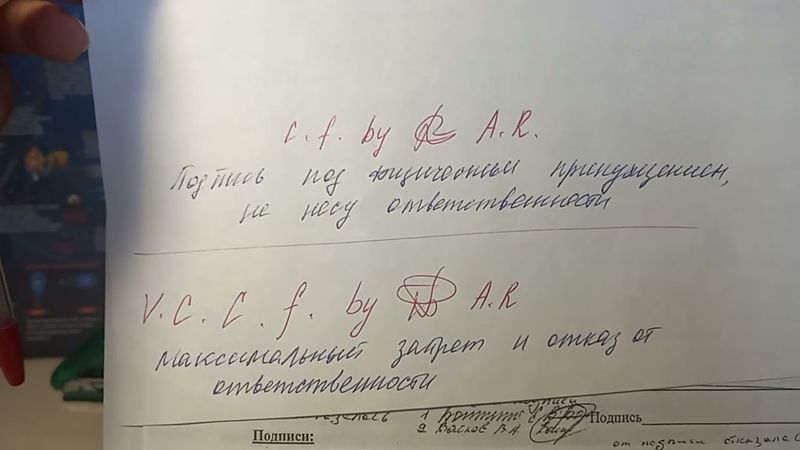 c. f. by A.R.
Подпись под физическим принуждением,
не несу ответственности
V. C. C. f. by A.R
максимальный запрет и отказ от
ответственности
подписи
1
2 В.А. Подпись
Подписи:
от подписи отказалась